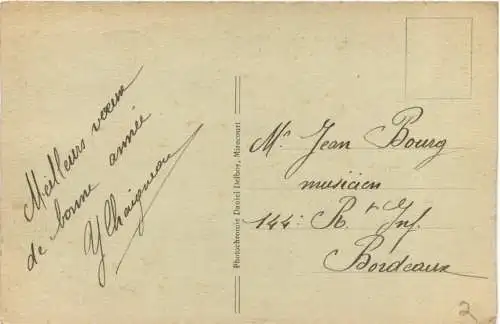 Meilleurs vœux
de bonne année
Photochromie Daniel Delbey, Mirecourt
Mr Jean Bourg
musicien
144e Rt Inf.
Bordeaux
2